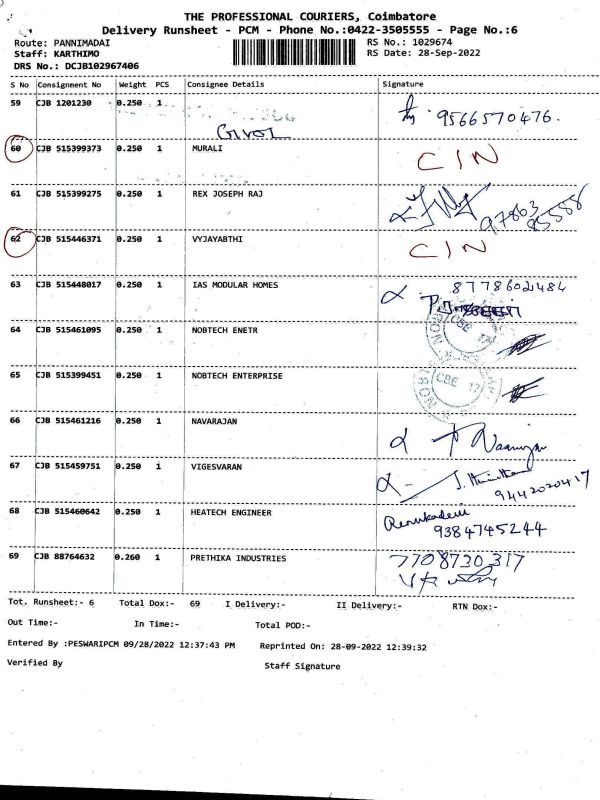 THE PROFESSIONAL COURIERS, Coimbatore
Delivery Runsheet - PCM - Phone No.:0422-3505555 - Page No.:6
Route: PANNIMADAI RS No.: 1029674
Staff: KARTHIMO RS Date: 28-Sep-2022
DRS No.: DCJB102967406
S No Consignment No Weight PCS Consignee Details Signature
59 CJB 1201230 0.250 1 9566570476.
60 CJB 515399373 0.250 1 MURALI CIN
61 CJB 515399275 0.250 1 REX JOSEPH RAJ 97863
85588
62 CJB 515446371 0.250 1 VYJAYABTHI CIN
63 CJB 515448017 0.250 1 IAS MODULAR HOMES 8778602484
64 CJB 515461095 0.250 1 NOBTECH ENETR
65 CJB 515399451 0.250 1 NOBTECH ENTERPRISE CBE 17
66 CJB 515461216 0.250 1 NAVARAJAN
67 CJB 515459751 0.250 1 VIGESVARAN
9442020417
68 CJB 515460642 0.250 1 HEATECH ENGINEER Renukadevi
9384745244
69 CJB 88764632 0.260 1 PRETHIKA INDUSTRIES 7708730317
Tot. Runsheet:- 6 Total Dox:- 69 I Delivery:- II Delivery:- RTN Dox:-
Out Time:- In Time:- Total POD:-
Entered By :PESWARIPCM 09/28/2022 12:37:43 PM Reprinted On: 28-09-2022 12:39:32
Verified By Staff Signature